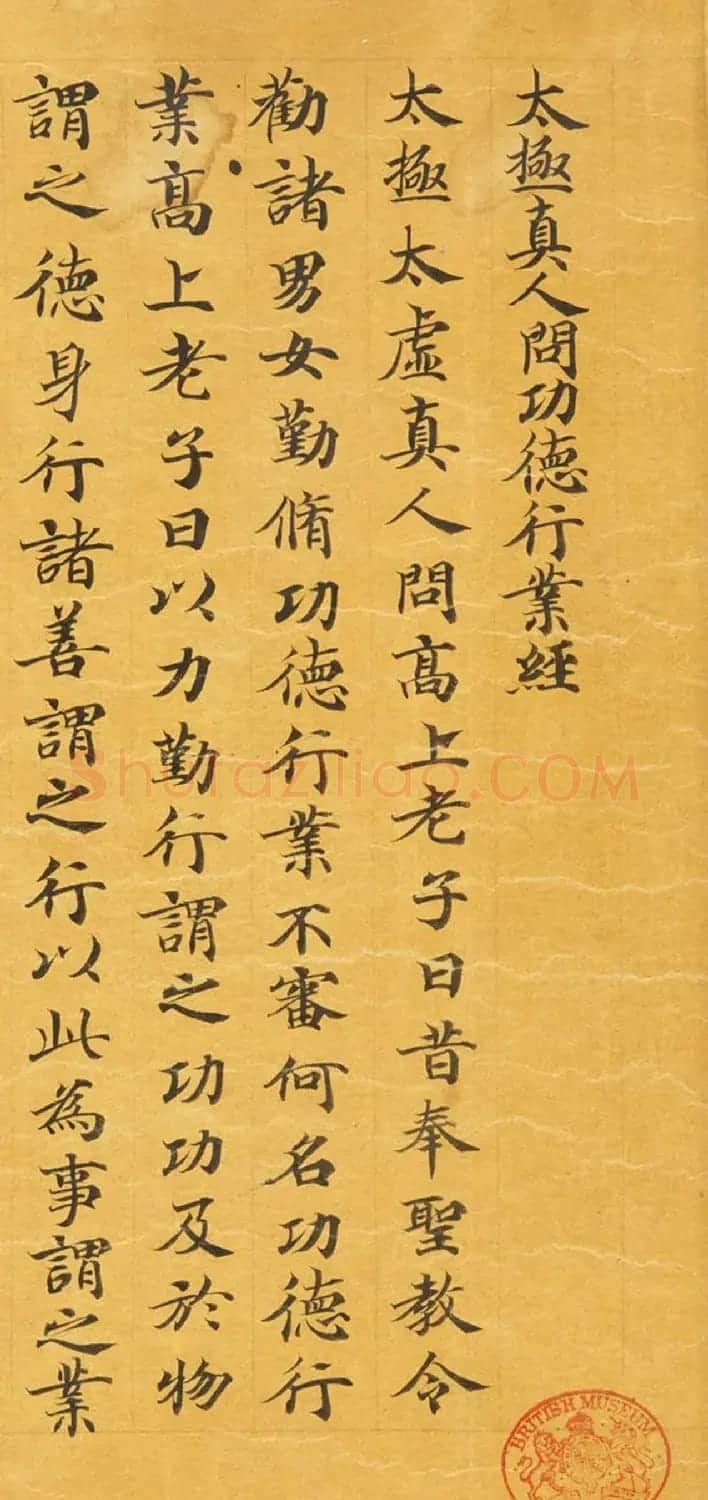 太極真人問功德行業經
太極太虛真人問高上老子曰昔奉聖教令
勸諸男女勤脩功德行業不審何名功德行
業高上老子曰以力勤行謂之功功及於物
謂之德身行諸善謂之行以此為事謂之業
Shufaziliao.COM
BRITISH MUSEUM